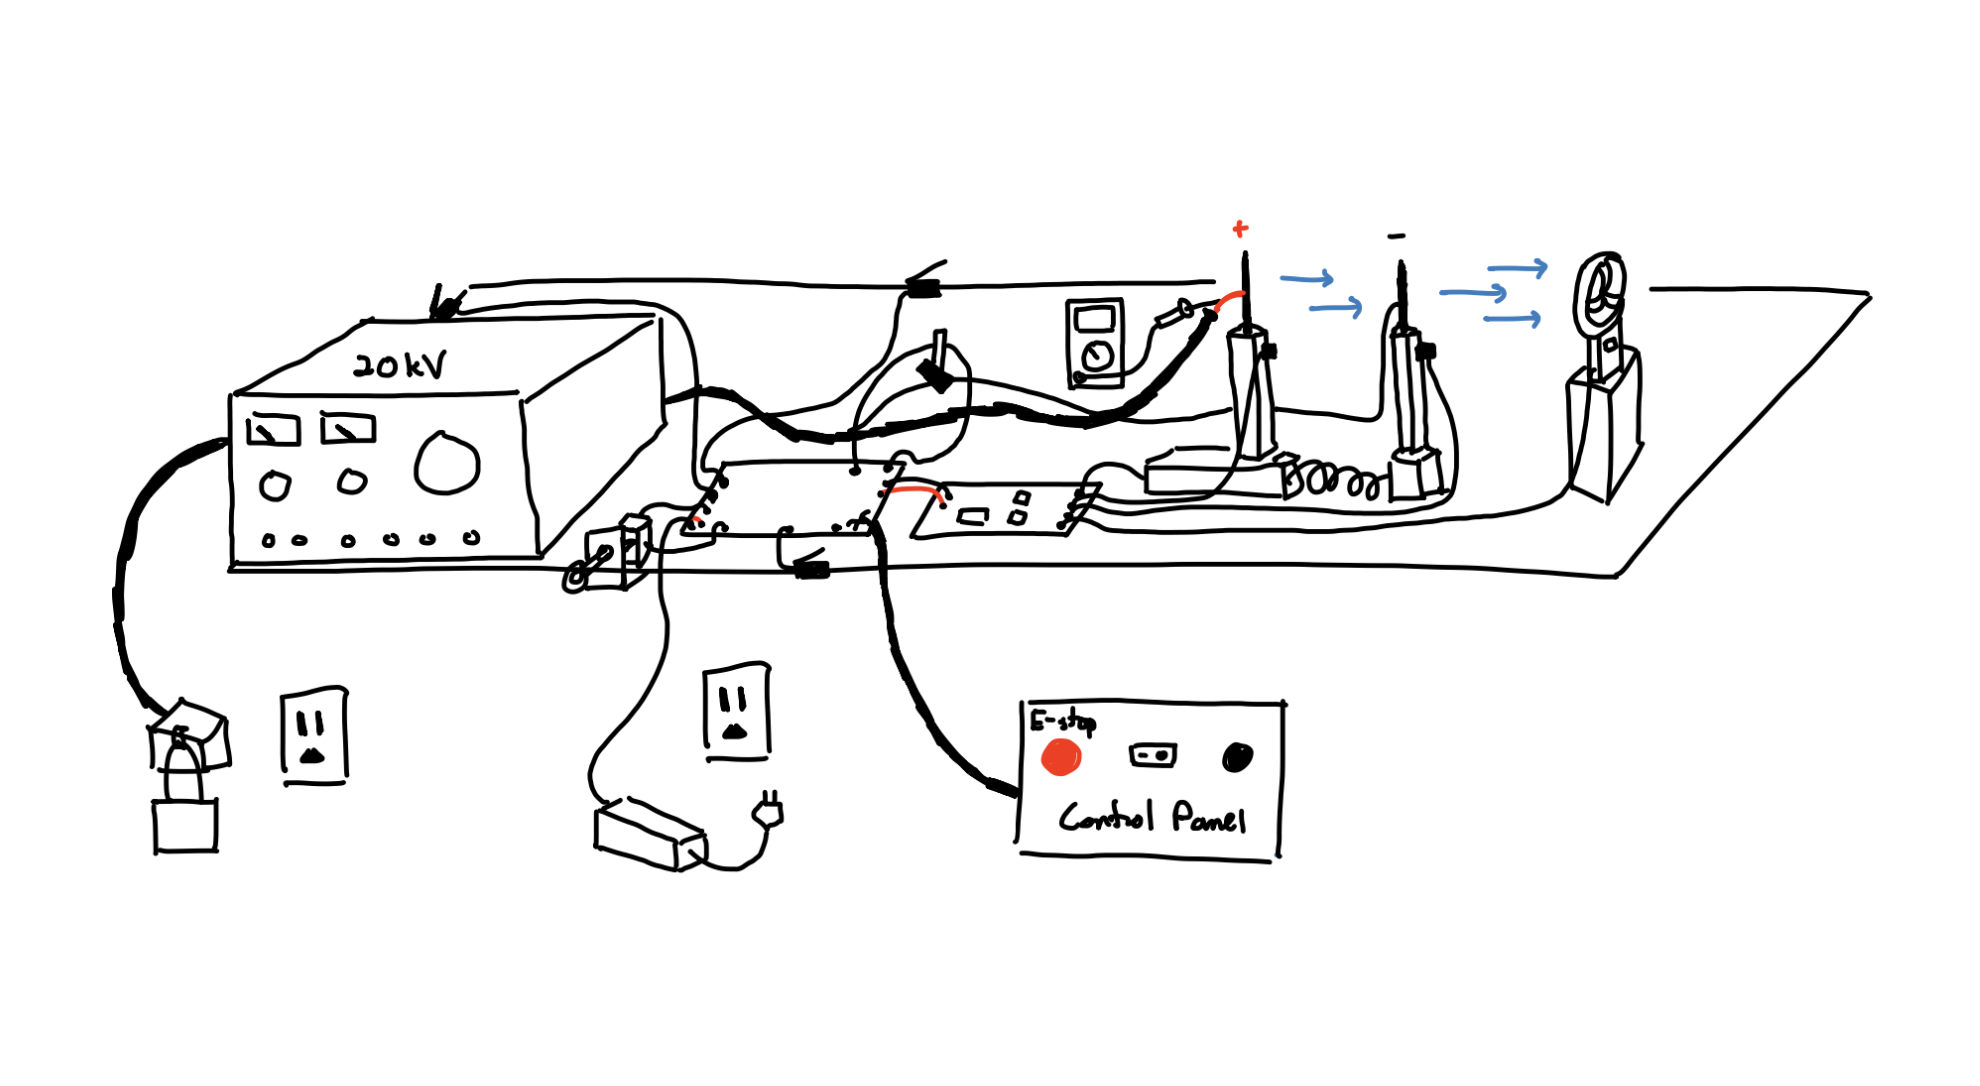 +
-
20 kV
E-stop
Control Panel